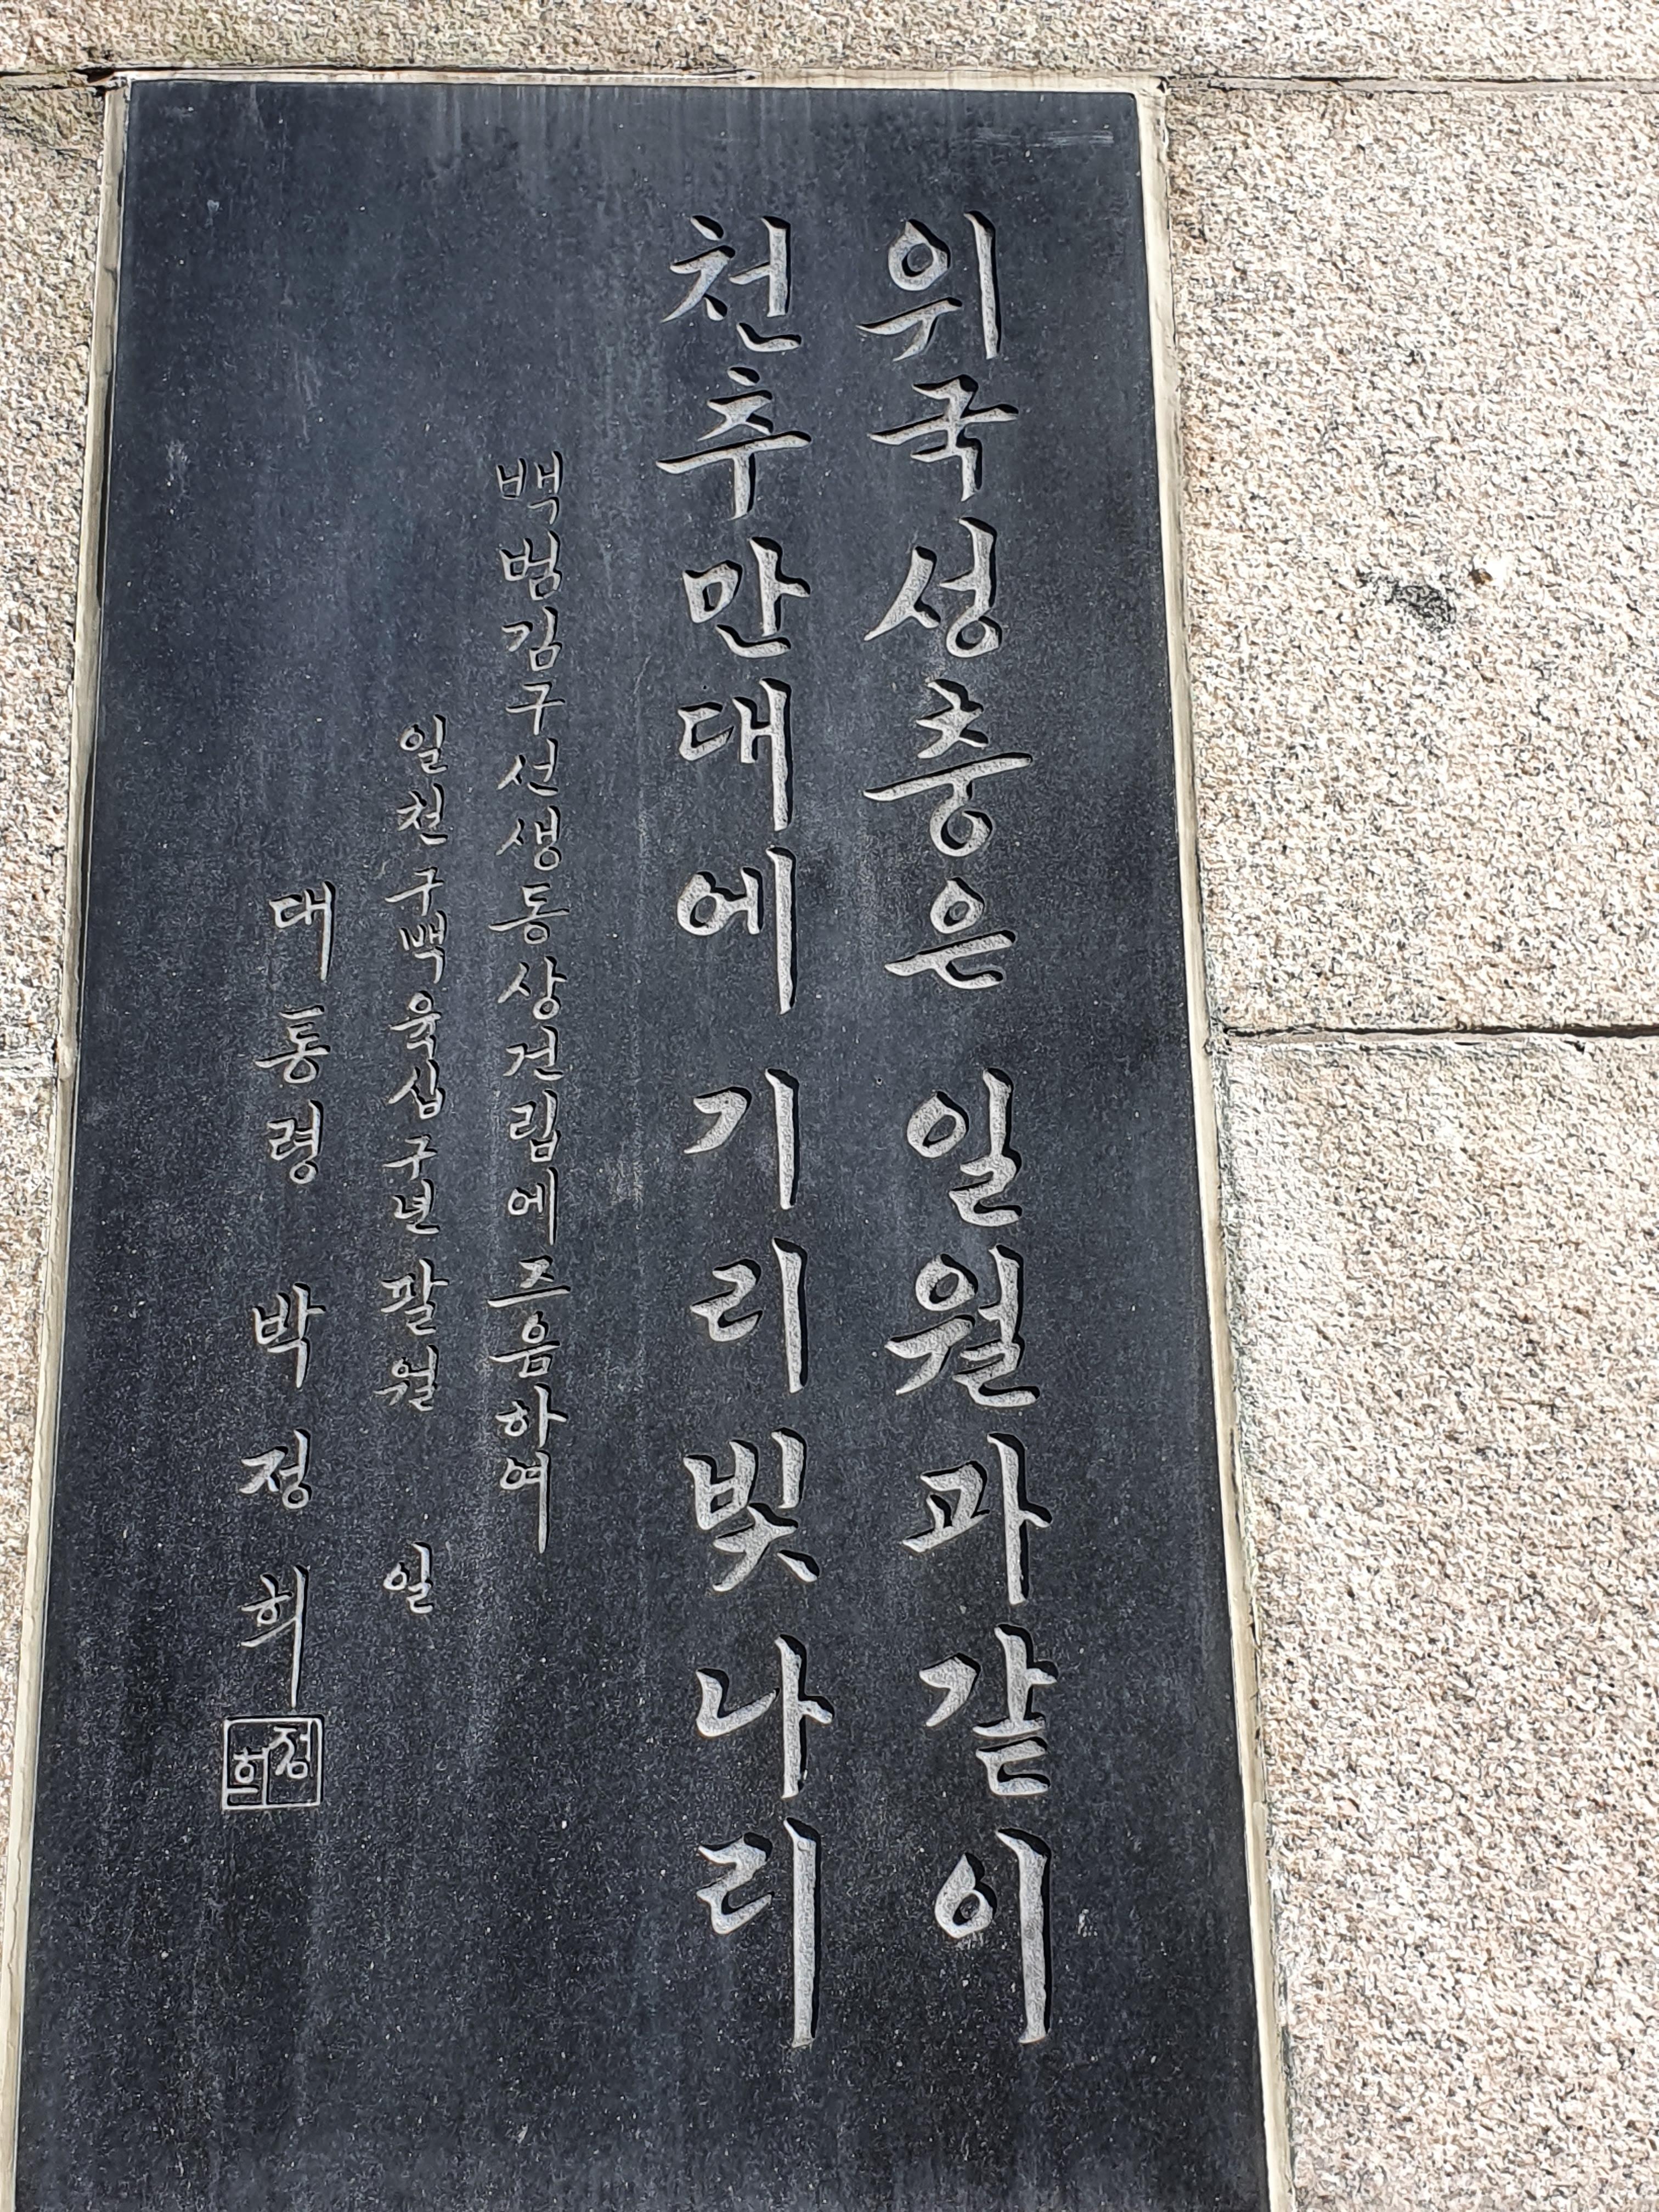 위국성충은 일월과 같이
천추만대에 기리 빛나리
백범김구선생동상건립에 즈음하여
일천구백육십구년 팔월 일
대통령 박정희
정희